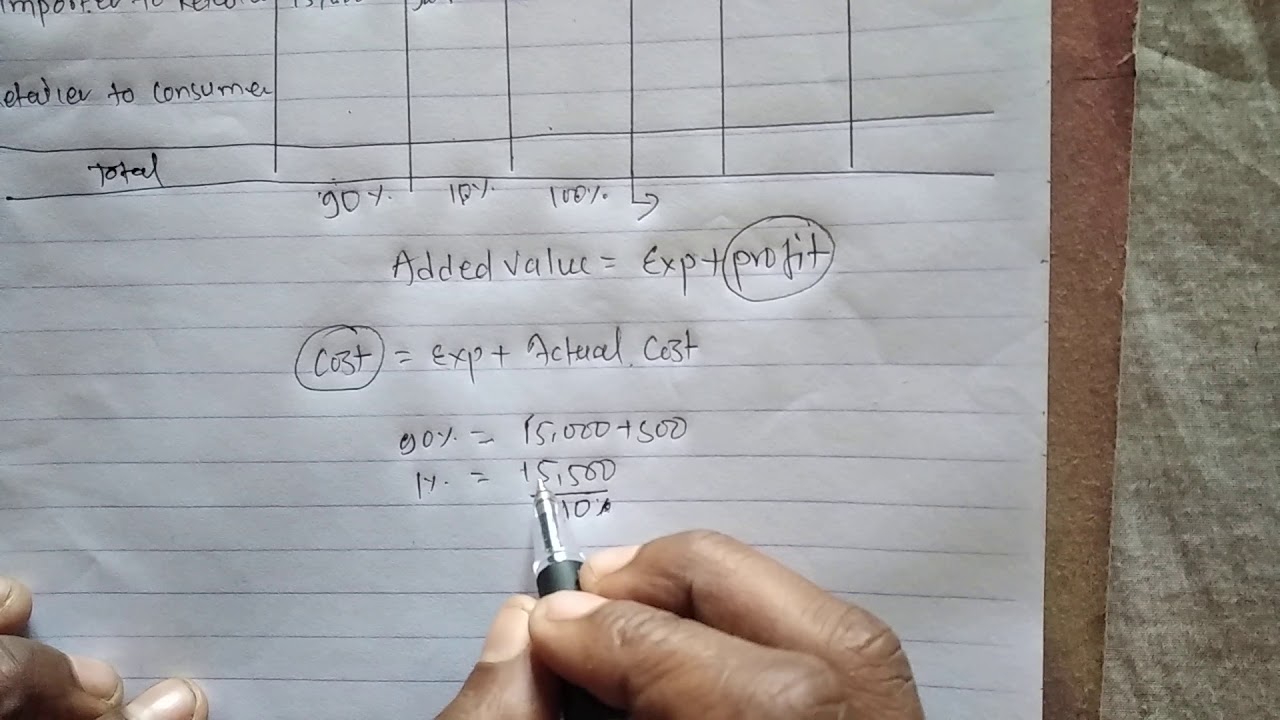 to
etailer to consumer
Total 90% 10% 100%
Added value = Exp + profit
Cost = Exp + Actual Cost
90% = 15,000 + 500
1% = 15,500
10%